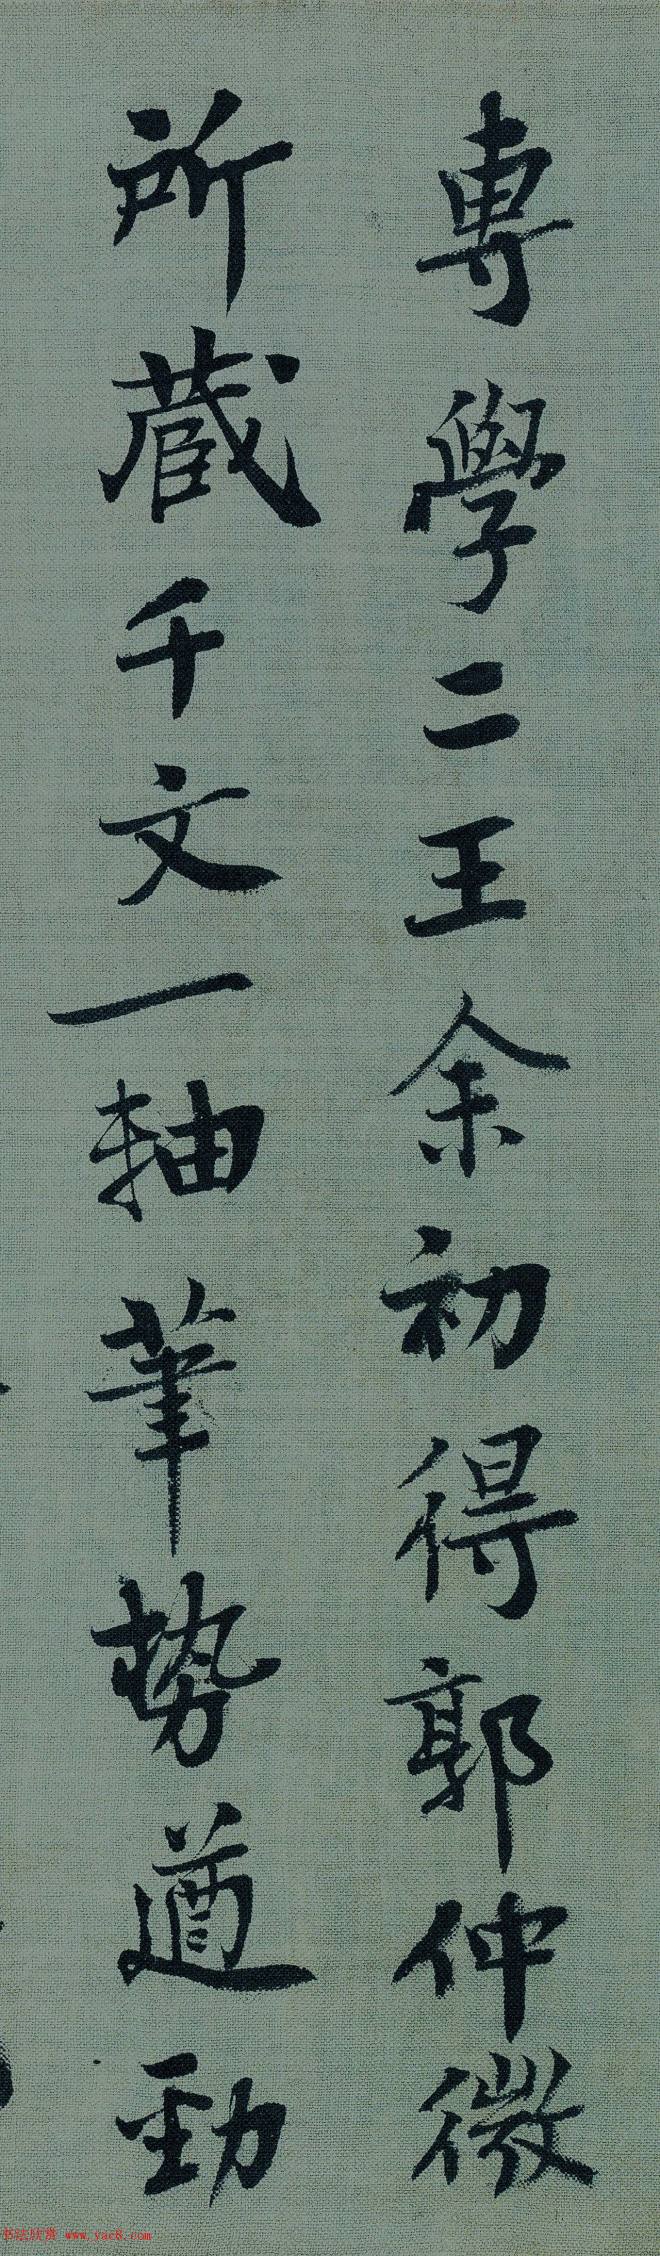 專學二王余初得郭仲微
所蔵千文一軸筆勢遒勁
书法欣赏 www.yac8.com